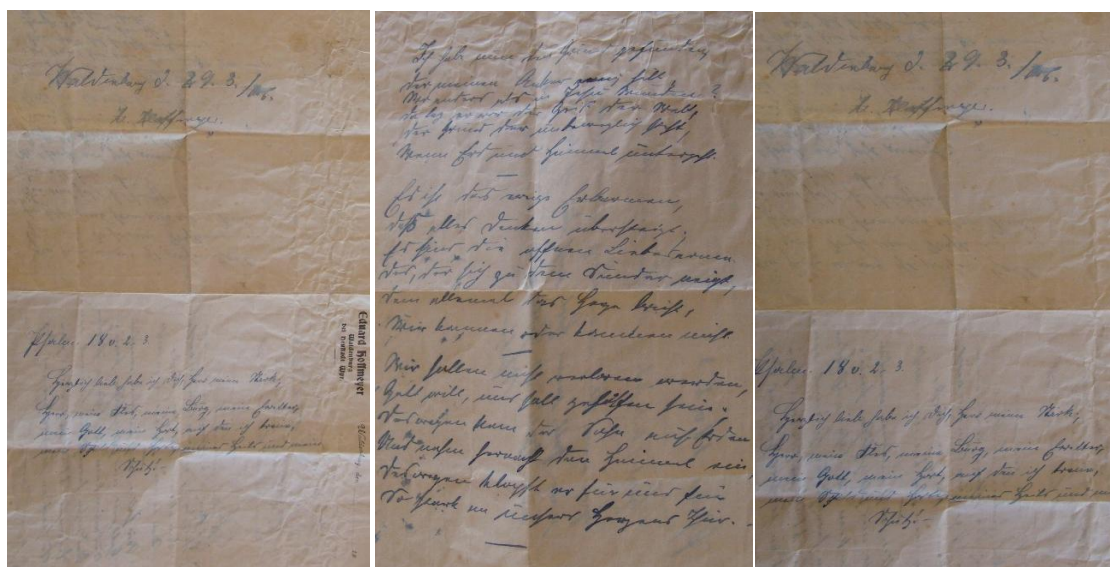 Waldenburg d. 29. 3.
Psalm 18 v. 2. 3.
Herzlich lieb habe ich Dich, Herr meine Stärke,
Herr, mein Fels, meine Burg, mein Erretter,
mein Gott, mein Hort, auf den ich traue,
mein Schild und Horn meines Heils und mein
Schutz.
Eduard Hoffmeyer
Waldenburg
bei Neustadt Wpr.
Waldenburg, den
19
Ich habe nun den Grund gefunden,
Der meinen Anker ewig hält
Wo anders als in Jesu Wunden?
Da lag er vor der Zeit der Welt,
Der Grund der unbeweglich steht,
Wenn Erd und Himmel untergeht.
Es ist das ewige Erbarmen,
Das alles Denken übersteigt.
Es sind die offnen Liebesarmen
Des, der sich zu dem Sünder neigt,
Dem allemal das Herze bricht,
Wir kommen oder kommen nicht.
Wir sollen nicht verloren werden,
Gott will, uns soll geholfen sein.
Deswegen kam der Sohn auf Erden
Und nahm hernach den Himmel ein,
Deswegen klopft er für und für
So stark an unsers Herzens Thür.
Waldenburg d. 29. 3.
Psalm 18 v. 2. 3.
Herzlich lieb habe ich Dich, Herr meine Stärke,
Herr, mein Fels, meine Burg, mein Erretter,
mein Gott, mein Hort, auf den ich traue,
mein Schild und Horn meines Heils und m
Schutz.